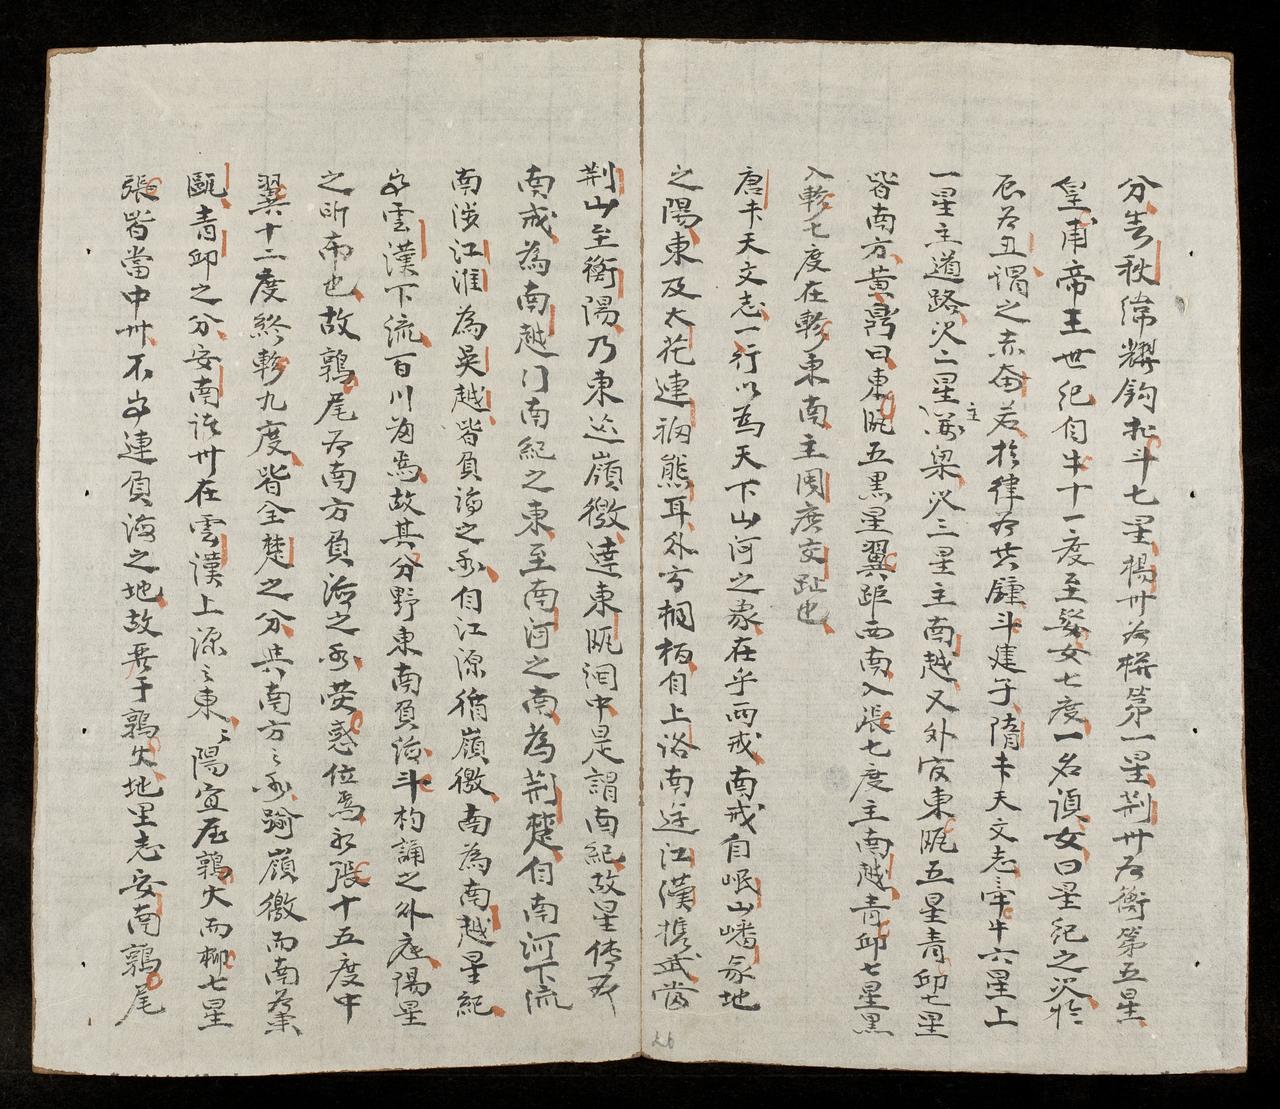 分春秋緯耀鈎北斗七星楊州为權第一星荆州为衡第五星
皇甫帝王世紀自牛十一度至婺女七度一名湏女曰星紀之次於
辰为丑謂之赤奋若於律为黄鍾斗建子隋志天文志牵牛六星上
一星主道路次二星主関梁次三星主南越又外官東甌五星青邱七星
皆南方黄鼎曰東甌五黑星翼距西南入張七度主南越青邱七星黑
入軫七度在軫東南主周廣交趾也
唐志天文志一行以為天下山河之象在乎両戒南戒自岷山嶓冢地
之陽東及太花連
熊耳外方桐栢自上洛南逆江漢携武當
荆山至衡陽乃東迯嶺徼達東甌洄中是謂南紀故星傳
南戒為南越门南紀之東至南河之南為荆楚自南河下流
南涉江淮為吳越皆負海之
自江源循嶺徼南為南越星紀
雲漢下流百川
焉故其分野東南負海斗杓誦之外
陽星
之所布也故鶉尾为南方負海之
荧惑位焉
張十五度中
翼十二度終軫九度皆全楚之分與南方之
踰嶺徼而南为
甌青邱之分安南諸州在雲漢上源之東
陽宜属鶉火而柳七星
張皆當中州不
連負海之地故
于鶉火地里志安南鶉尾